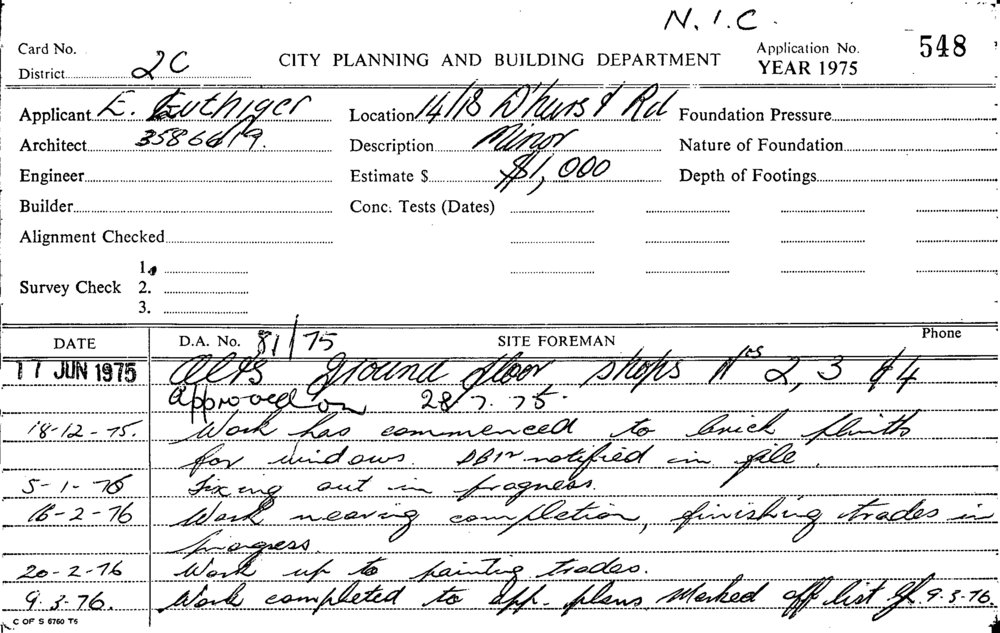 N.I.C.
Card No.
District 2C
CITY PLANNING AND BUILDING DEPARTMENT
Application No. 548
YEAR 1975
Applicant E. Euthiger
Location 14/18 D'hurst Rd
Foundation Pressure
Architect 358 66/19.
Description Minor
Nature of Foundation
Engineer
Estimate $ $1,000
Depth of Footings
Builder
Conc. Tests (Dates)
Alignment Checked
1.
Survey Check 2.
3.
DATE D.A. No. 81/75 SITE FOREMAN Phone
17 JUN 1975 Alts ground floor shops Nos 2, 3 & 4
Approved on 28/7.75.
18-12-75. Work has commenced to brick plinths
for windows. notified in file.
5-1-76 Fixing out in progress.
16-2-76 Work nearing completion, finishing trades in
progress.
20-2-76 Work up to painting trades.
9.3.76. Work completed to app. plans. Marked off list 9.3.76.
C OF S 6760 T6